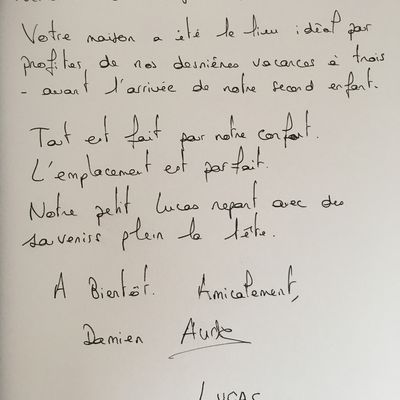 Votre maison a été le lieu idéal pour
profiter de nos dernières vacances à trois
- avant l'arrivée de notre second enfant.
Tout est fait pour notre confort.
L'emplacement est parfait.
Notre petit Lucas repart avec des
souvenirs plein la tête.
A Bientôt. Amicalement,
Damien Aude
LUCAS